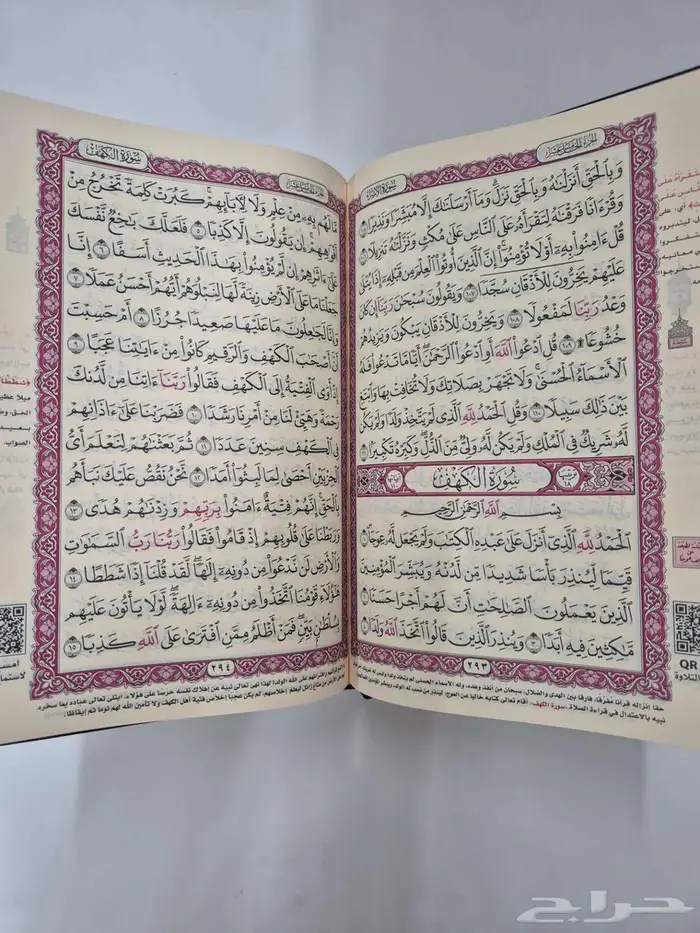 الجزء الخامس عشر
سورة الإسراء
وَبِالْحَقِّ أَنزَلْنَاهُ وَبِالْحَقِّ نَزَلَ وَمَا أَرْسَلْنَاكَ إِلَّا مُبَشِّرًا وَنَذِيرًا ١٠٥
وَقُرْءَانًا فَرَقْنَاهُ لِتَقْرَأَهُ عَلَى النَّاسِ عَلَى مُكْثٍ وَنَزَّلْنَاهُ تَنزِيلًا ١٠٦
قُلْ ءَامِنُوا بِهِ أَوْ لَا تُؤْمِنُوا إِنَّ الَّذِينَ أُوتُوا الْعِلْمَ مِن قَبْلِهِ إِذَا يُتْلَى
عَلَيْهِمْ يَخِرُّونَ لِلْأَذْقَانِ سُجَّدًا ١٠٧ وَيَقُولُونَ سُبْحَانَ رَبِّنَا إِن كَانَ
وَعْدُ رَبِّنَا لَمَفْعُولًا ١٠٨ وَيَخِرُّونَ لِلْأَذْقَانِ يَبْكُونَ وَيَزِيدُهُمْ
خُشُوعًا ۩ ١٠٩ قُلِ ادْعُوا اللَّهَ أَوِ ادْعُوا الرَّحْمَٰنَ أَيًّا مَّا تَدْعُوا فَلَهُ
الْأَسْمَاءُ الْحُسْنَى وَلَا تَجْهَرْ بِصَلَاتِكَ وَلَا تُخَافِتْ بِهَا وَابْتَغِ
بَيْنَ ذَٰلِكَ سَبِيلًا ١١٠ وَقُلِ الْحَمْدُ لِلَّهِ الَّذِي لَمْ يَتَّخِذْ وَلَدًا وَلَمْ يَكُن
لَّهُ شَرِيكٌ فِي الْمُلْكِ وَلَمْ يَكُن لَّهُ وَلِيٌّ مِّنَ الذُّلِّ وَكَبِّرْهُ تَكْبِيرًا ١١١
سُورَةُ الْكَهْفِ
بِسْمِ اللَّهِ الرَّحْمَٰنِ الرَّحِيمِ
الْحَمْدُ لِلَّهِ الَّذِي أَنزَلَ عَلَى عَبْدِهِ الْكِتَابَ وَلَمْ يَجْعَل لَّهُ عِوَجًا ١
قَيِّمًا لِّيُنذِرَ بَأْسًا شَدِيدًا مِّن لَّدُنْهُ وَيُبَشِّرَ الْمُؤْمِنِينَ
الَّذِينَ يَعْمَلُونَ الصَّالِحَاتِ أَنَّ لَهُمْ أَجْرًا حَسَنًا ٢
مَّاكِثِينَ فِيهِ أَبَدًا ٣ وَيُنذِرَ الَّذِينَ قَالُوا اتَّخَذَ اللَّهُ وَلَدًا ٤
٢٩٣
QR
التلاوة
الجزء الخامس عشر
سورة الكهف
مَّا لَهُم بِهِ مِنْ عِلْمٍ وَلَا لِآبَائِهِمْ كَبُرَتْ كَلِمَةً تَخْرُجُ مِنْ
أَفْوَاهِهِمْ إِن يَقُولُونَ إِلَّا كَذِبًا ٥ فَلَعَلَّكَ بَاخِعٌ نَّفْسَكَ
عَلَى ءَاثَارِهِمْ إِن لَّمْ يُؤْمِنُوا بِهَٰذَا الْحَدِيثِ أَسَفًا ٦ إِنَّا
جَعَلْنَا مَا عَلَى الْأَرْضِ زِينَةً لَّهَا لِنَبْلُوَهُمْ أَيُّهُمْ أَحْسَنُ عَمَلًا ٧
وَإِنَّا لَجَاعِلُونَ مَا عَلَيْهَا صَعِيدًا جُرُزًا ٨ أَمْ حَسِبْتَ
أَنَّ أَصْحَابَ الْكَهْفِ وَالرَّقِيمِ كَانُوا مِنْ ءَايَاتِنَا عَجَبًا ٩
إِذْ أَوَى الْفِتْيَةُ إِلَى الْكَهْفِ فَقَالُوا رَبَّنَا ءَاتِنَا مِن لَّدُنكَ
رَحْمَةً وَهَيِّئْ لَنَا مِنْ أَمْرِنَا رَشَدًا ١٠ فَضَرَبْنَا عَلَى ءَاذَانِهِمْ
فِي الْكَهْفِ سِنِينَ عَدَدًا ١١ ثُمَّ بَعَثْنَاهُمْ لِنَعْلَمَ أَيُّ
الْحِزْبَيْنِ أَحْصَى لِمَا لَبِثُوا أَمَدًا ١٢ نَّحْنُ نَقُصُّ عَلَيْكَ نَبَأَهُم
بِالْحَقِّ إِنَّهُمْ فِتْيَةٌ ءَامَنُوا بِرَبِّهِمْ وَزِدْنَاهُمْ هُدًى ١٣
وَرَبَطْنَا عَلَى قُلُوبِهِمْ إِذْ قَامُوا فَقَالُوا رَبُّنَا رَبُّ السَّمَاوَاتِ
وَالْأَرْضِ لَن نَّدْعُوَا مِن دُونِهِ إِلَٰهًا لَّقَدْ قُلْنَا إِذًا شَطَطًا ١٤
هَٰؤُلَاءِ قَوْمُنَا اتَّخَذُوا مِن دُونِهِ ءَالِهَةً لَّوْلَا يَأْتُونَ عَلَيْهِم
بِسُلْطَانٍ بَيِّنٍ فَمَنْ أَظْلَمُ مِمَّنِ افْتَرَى عَلَى اللَّهِ كَذِبًا ١٥
٢٩٤
حراج